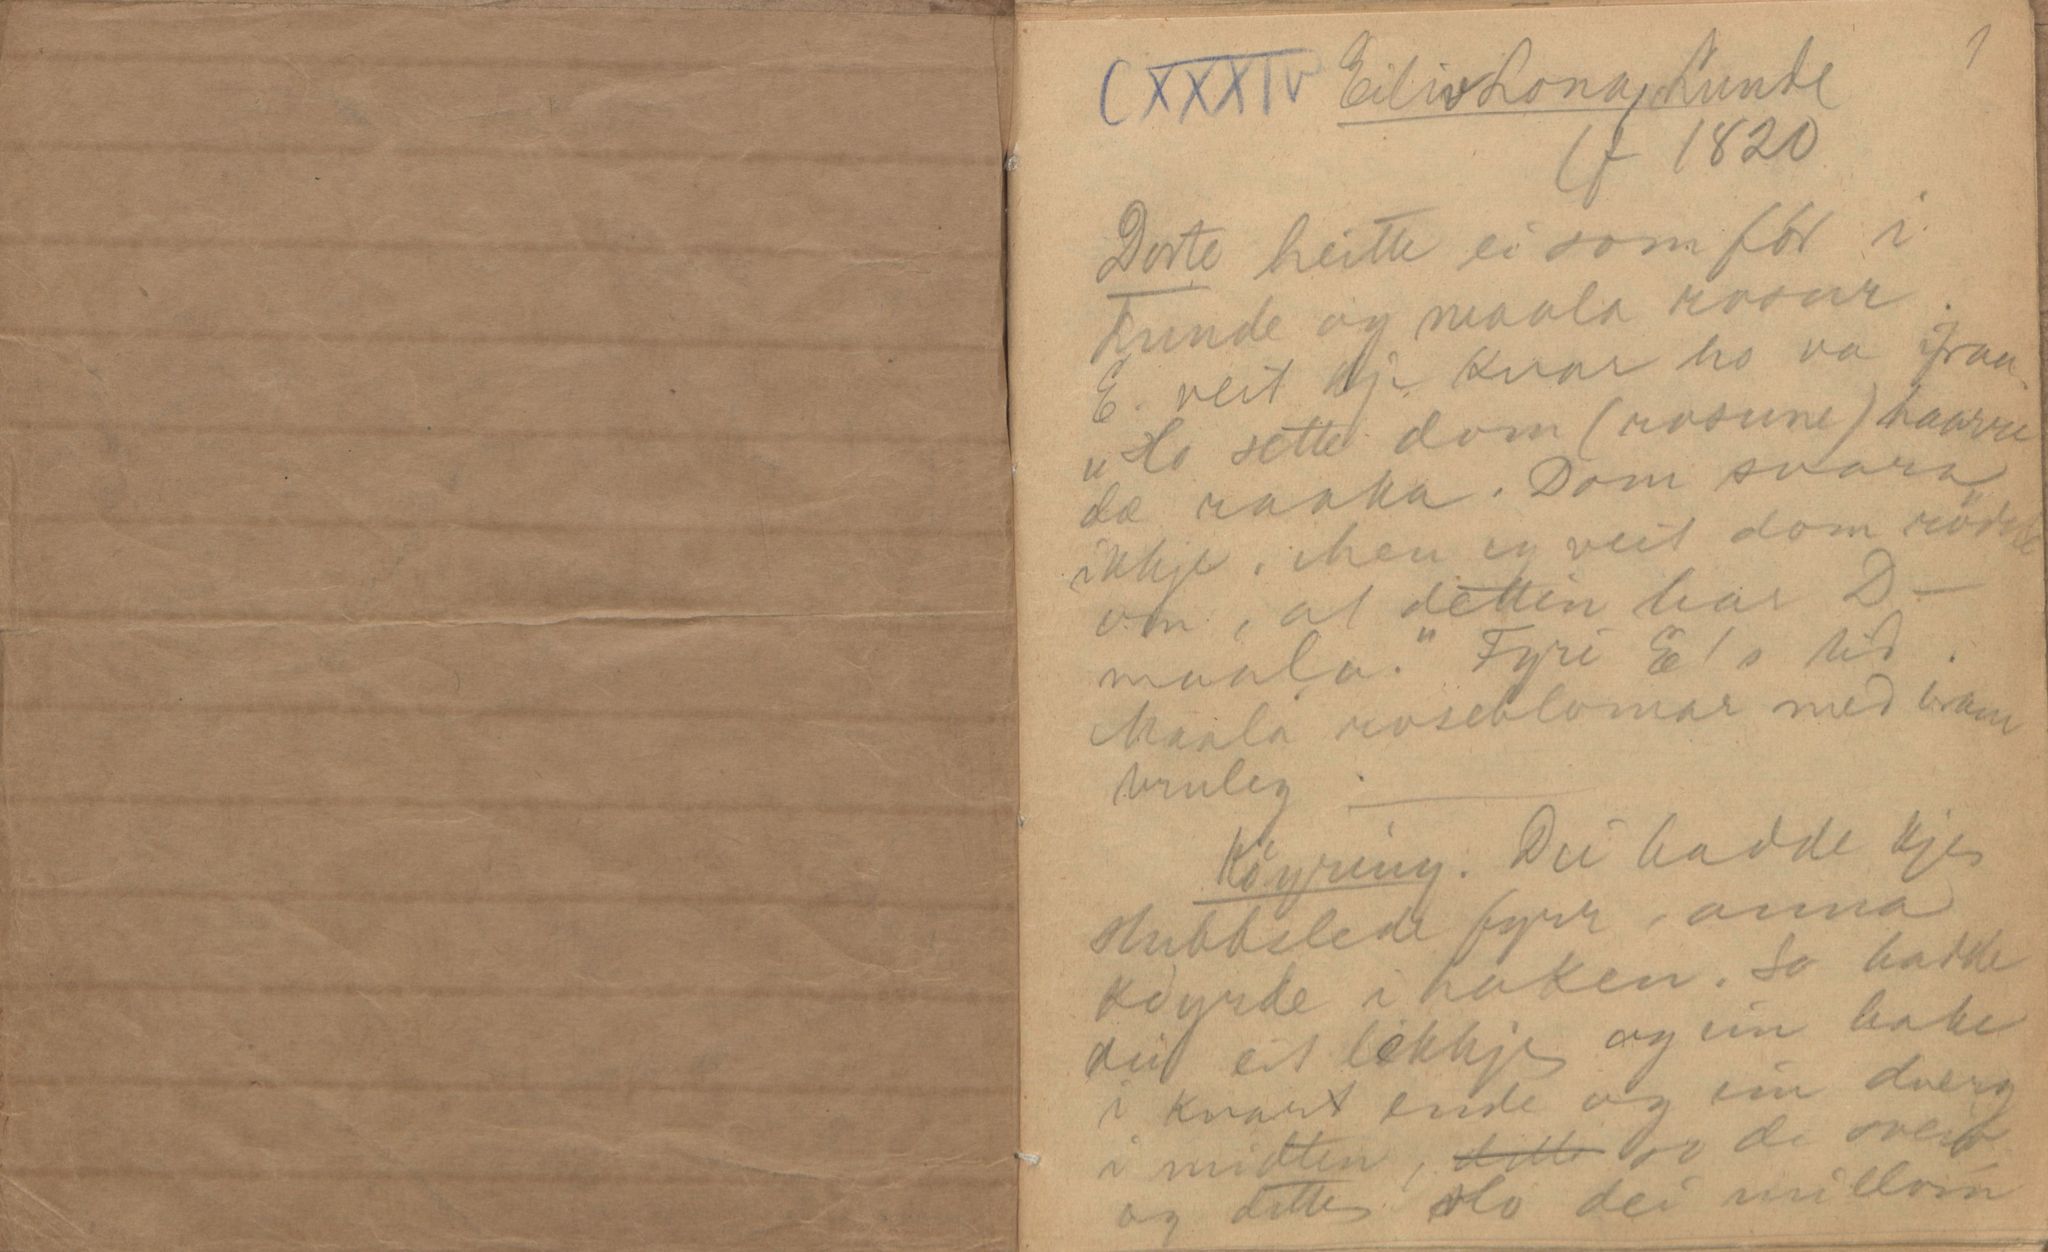 1
CXXXIV Eiliv Lona, Kunde
(f 1820
Dorte heitte ei som fór i
Kunde og maala rosur.
E. veit kje kvar ho va ifraa.
"Ho sette dom (rosune)
dæ raaka. Dom svara
ikkje. Men eg veit dom rödde
om, at dettin har D–
maala." Fyri E's tid.
Maala roseblomar med
Köyring. Dei hadde kje
stubbslede fyrr, anna
köyrde i haken. So hadde
dei eit lekkje og ein hake
i kvart ende og ein dverg
i midten, dette so de sveiv
og dette slo dei millom